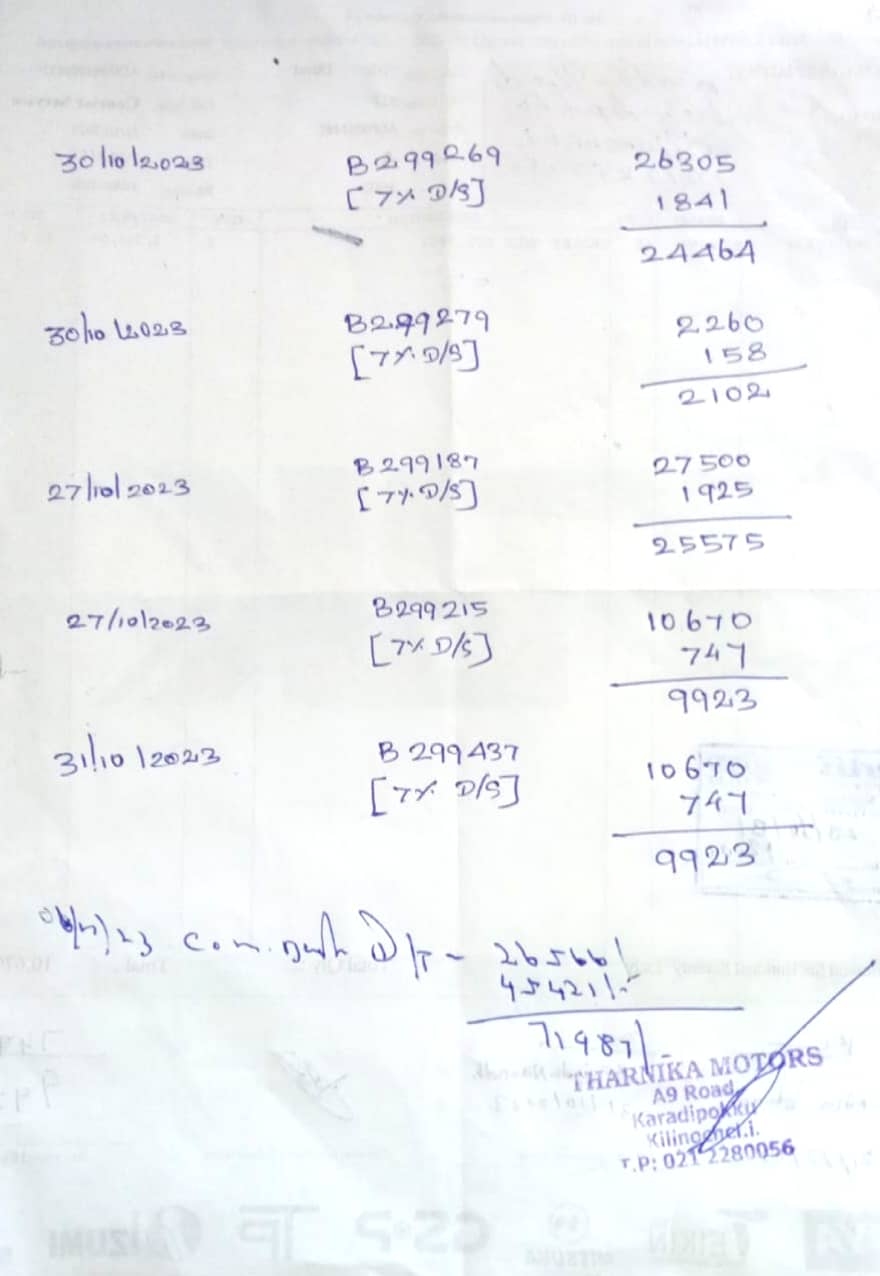 30/10/2023 B299269 26305
[7% D/S] 1841
24464
30/10/2023 B299279 2260
[7% D/S] 158
2102
27/10/2023 B299187 27500
[7% D/S] 1925
25575
27/10/2023 B299215 10670
[7% D/S] 747
9923
31/10/2023 B299437 10670
[7% D/S] 747
9923
com. - 26566/
45421/-
71987/-
THARNIKA MOTORS
A9 Road
Karadipokku
T.P: 021 2280056